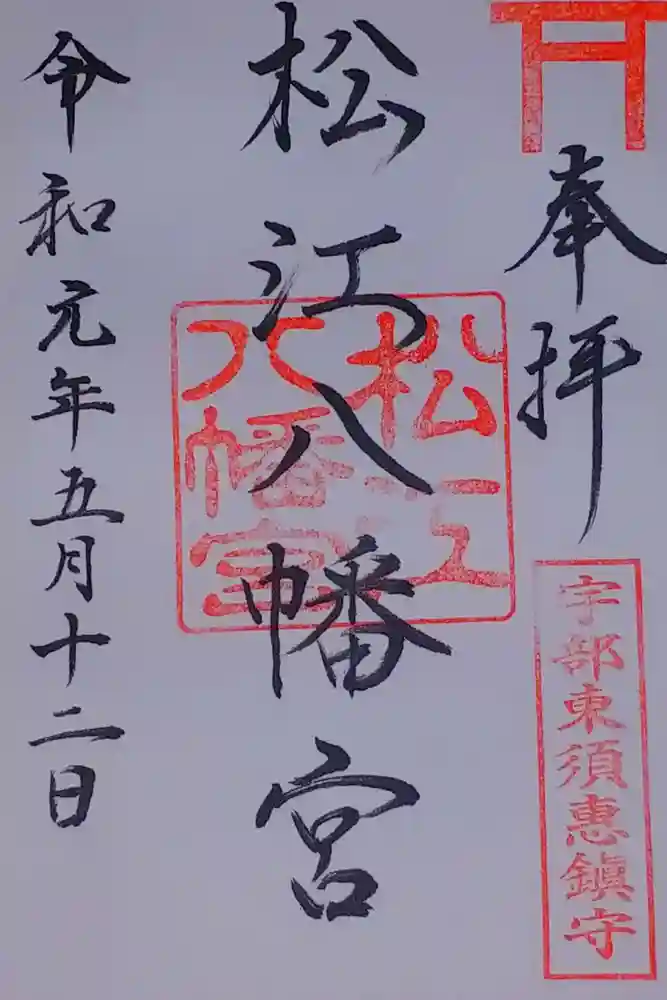 奉拝
宇部東須恵鎮守
松江八幡宮
松江
八幡宮
令和元年五月十二日